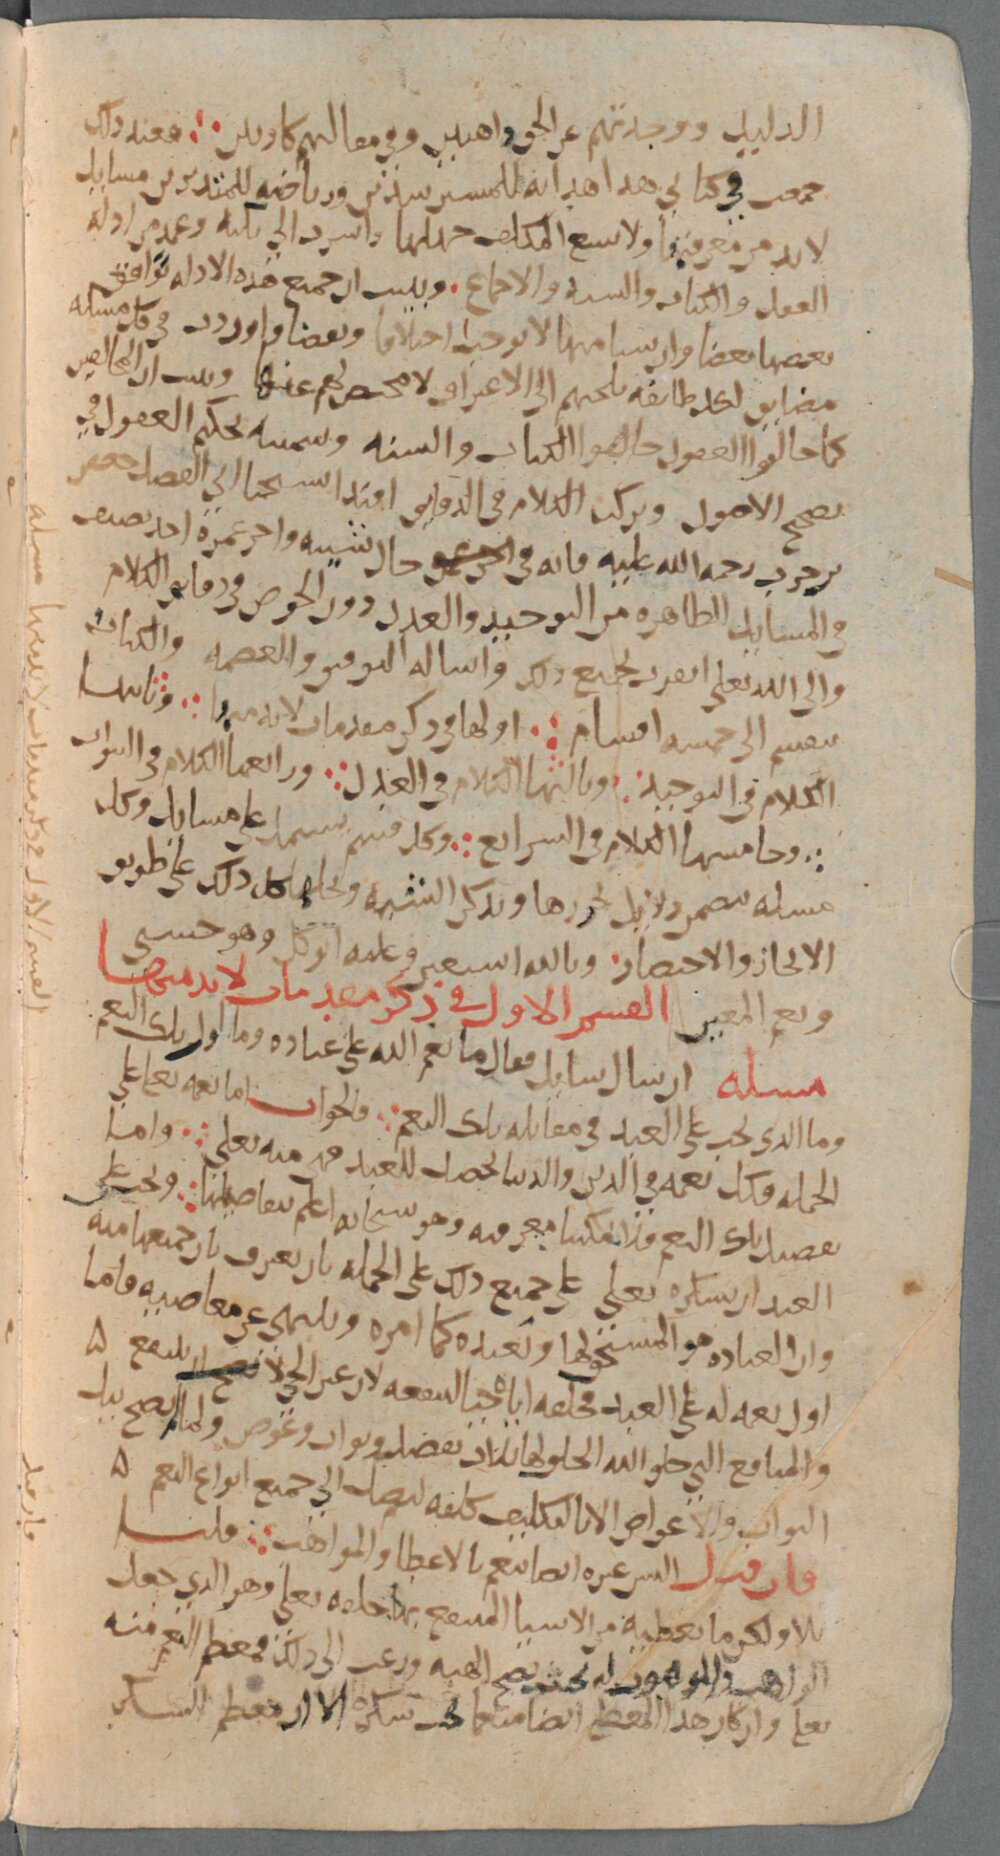 الدليل ووجدتهم عن الحق ذاهبين وفي مقالهم كاذبين ∴ فعند ذلك
جمعت في كتابي هذا هداية للمسترشدين ورياضة للمتدبرين مسايل
لا بد من معرفتها ولا يسع المكلف جهلها واشرت الى نكته وعمد من ادلة
العقل والكتاب والسنة والاجماع . وبينت ان جميع هذه الادلة توافق
بعضها بعضا وان شيئا منها لا يوجب اختلافا ونقضا واوردت في كل مسئلة
مضايق لكل طايفة تلجئهم الى الاعتراف لا محيص لهم عنها وبينت ان المخالفين
كما خالفوا العقول خالفوا الكتاب والسنة وسميته تحكيم العقول في
تصحيح الاصول وتركت الكلام في الدقايق اقتدا بشيخنا ابي الفضل جعفر
بن حرب رحمه الله عليه فانه في حال شيبه واخر عمره اخذ يصنف
في المسايل الظاهرة من التوحيد والعدل دون الخوض في دقايق الكلام
والى الله تعلى اتقرب بجميع ذلك واساله التوفيق والعصمة والكتاب
ينقسم الى خمسة اقسام ∴ اولها في ذكر مقدمات لا بد منها ∴ وثانيها
الكلام في التوحيد ∴ وثالثها الكلام في العدل ∴ ورابعها الكلام في النبوات
∴ وخامسها الكلام في الشرايع ∴ وكل قسم يشتمل على مسايل وكل
مسئلة تتضمن دلايل نحررها ونذكر الشبهة ونحلها كل ذلك على طريق
الايجاز والاختصار ∴ وبالله استعين وعليه اتوكل وهو حسبي
ونعم المعين القسم الاول في ذكر مقدمات لا بد منها
مسئلة ان سال سايل فقال ما نعم الله على عباده وما اول تلك النعم
وما الذي يجب على العبد في مقابلة تلك النعم ∴ والجواب اما نعمه تعلى على
الجملة فكل نعمة في الدين والدنيا تحصل للعبد فهي منه تعلى ∴ واما
تفصيل تلك النعم فلا يمكننا معرفته وهو سبحانه اعلم بتفاصيلها ∴ ويجب على
العبد ان يشكره تعلى على جميع ذلك على الجملة بان يعرف بان جميعها منه
وان العبادة هو المستحق لها ويعبده كما امره وينتهي عن معاصيه فاما
اول نعمه له على العبد فخلقه اياه حيا لينفعه لان غير الحي لا ينتفع
والمنافع التي خلق الله الخلق لها ثلاث تفضل وثواب وعوض ولما لم يصح نيل
الثواب والاعواض الا بالتكليف كلفه ليصل الى جميع انواع النعم
فان قيل اليس غيره ايضا ينعم بالاعطا والمواهب ∴ قلنا
بلا ولكن ما يعطيه من الاشيا المنتفع بها خلقه تعلى وهو الذي جعل
الواهب والموهوب له بحيث تصح الهبة ورغب الى ذلك فمعظم النعم منه
تعلى وان كان هذا المعطي ايضا منعما يجب شكره الا ان معظم الشكر
القسم الاول في ذكر مقدمات لا بد منها مسئلة
فان قيل